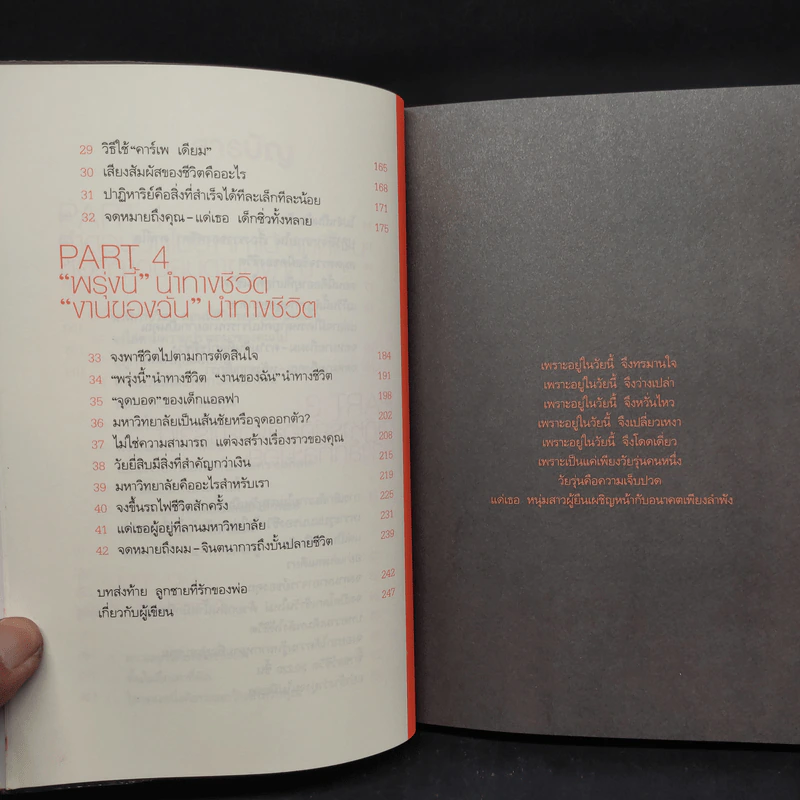 29 วิธีใช้“คาร์เพ เดียม” 165
30 เสียงสัมผัสของชีวิตคืออะไร 168
31 ปาฏิหาริย์คือสิ่งที่สำเร็จได้ทีละเล็กทีละน้อย 171
32 จดหมายถึงคุณ–แด่เธอ เด็กซิ่วทั้งหลาย 175
PART 4
“พรุ่งนี้” นำทางชีวิต
“งานของฉัน” นำทางชีวิต
33 จงพาชีวิตไปตามการตัดสินใจ 184
34 “พรุ่งนี้”นำทางชีวิต “งานของฉัน”นำทางชีวิต 191
35 “จุดบอด”ของเด็กแอลฟา 198
36 มหาวิทยาลัยเป็นเส้นชัยหรือจุดออกตัว? 202
37 ไม่ใช่ความสามารถ แต่จงสร้างเรื่องราวของคุณ 208
38 วัยยี่สิบมีสิ่งที่สำคัญกว่าเงิน 215
39 มหาวิทยาลัยคืออะไรสำหรับเรา 219
40 จงขึ้นรถไฟชีวิตสักครั้ง 225
41 แด่เธอผู้อยู่ที่ลานมหาวิทยาลัย 231
42 จดหมายถึงผม–จินตนาการถึงบั้นปลายชีวิต 239
บทส่งท้าย ลูกชายที่รักของพ่อ 242
เกี่ยวกับผู้เขียน 247
เพราะอยู่ในวัยนี้ จึงทรมานใจ
เพราะอยู่ในวัยนี้ จึงว่างเปล่า
เพราะอยู่ในวัยนี้ จึงหวั่นไหว
เพราะอยู่ในวัยนี้ จึงเปลี่ยวเหงา
เพราะอยู่ในวัยนี้ จึงโดดเดี่ยว
เพราะเป็นแค่เพียงวัยรุ่นคนหนึ่ง
วัยรุ่นคือความเจ็บปวด
แด่เธอ หนุ่มสาวผู้ยืนเผชิญหน้ากับอนาคตเพียงลำพัง